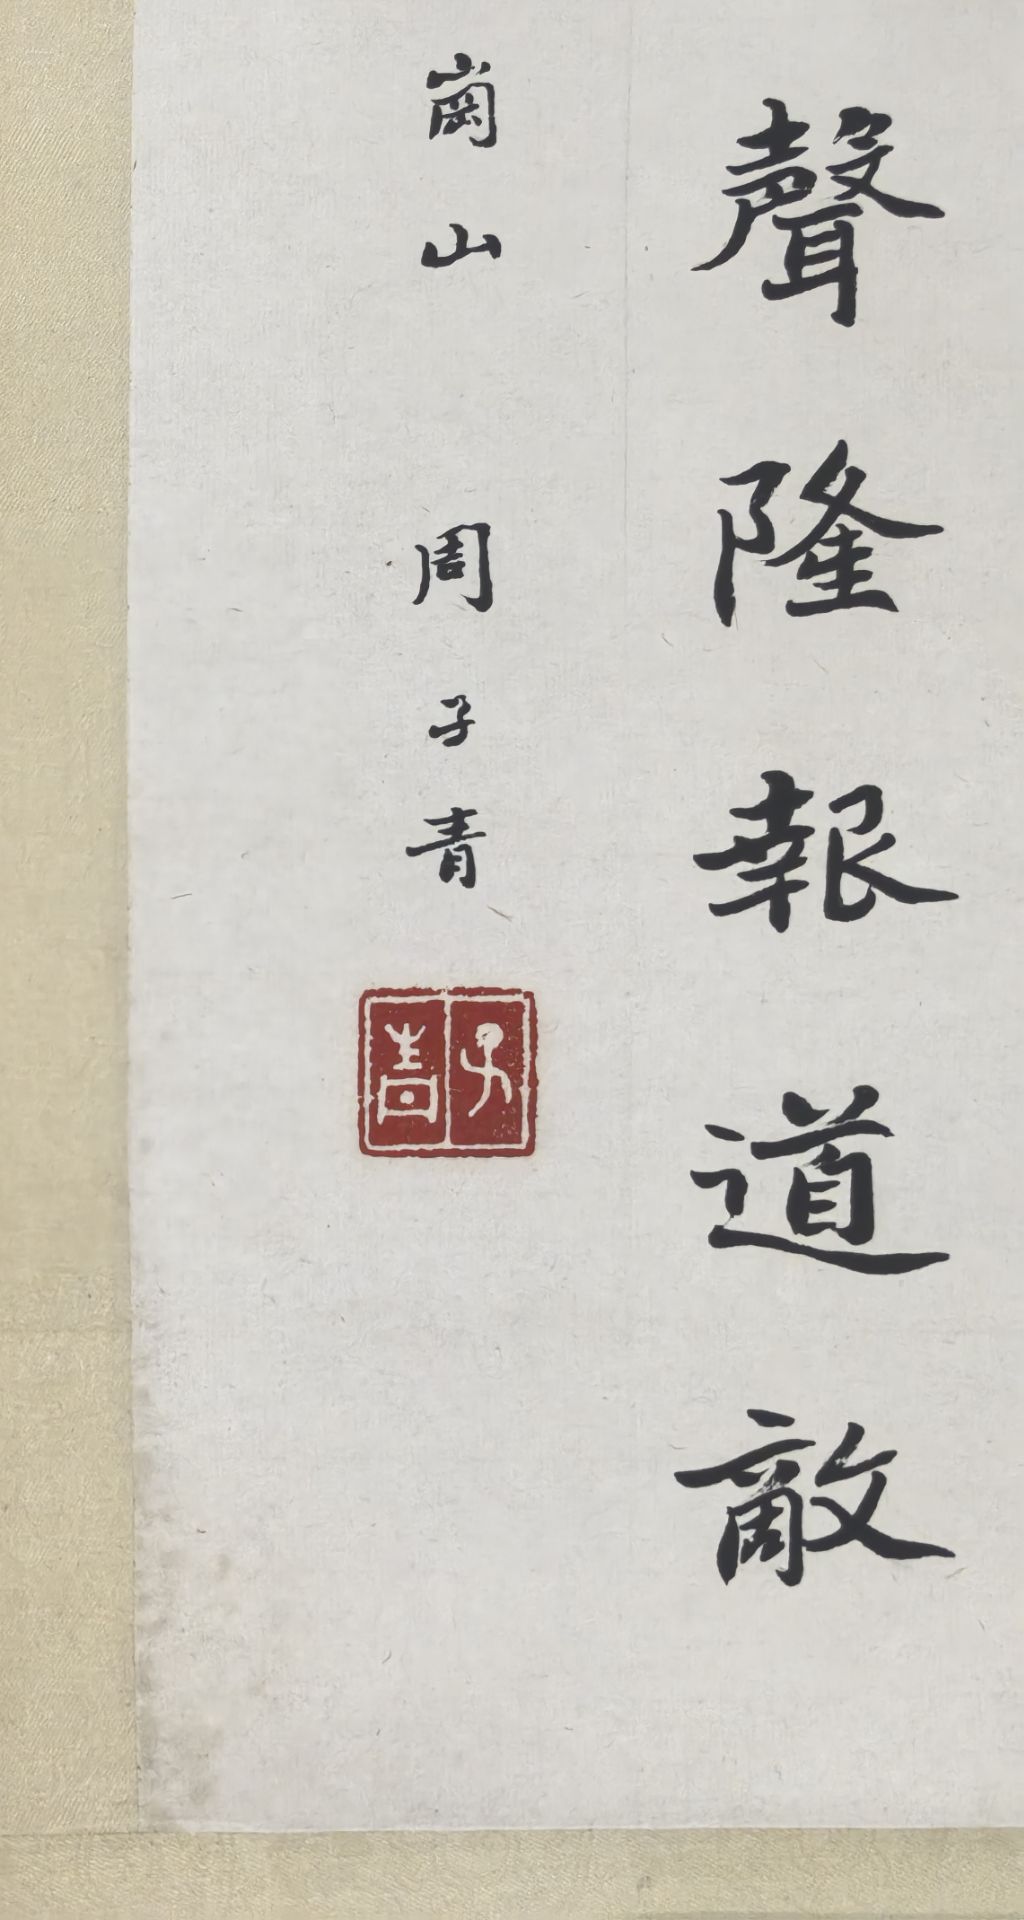 聲隆報道敵
崗山 周子青
子青